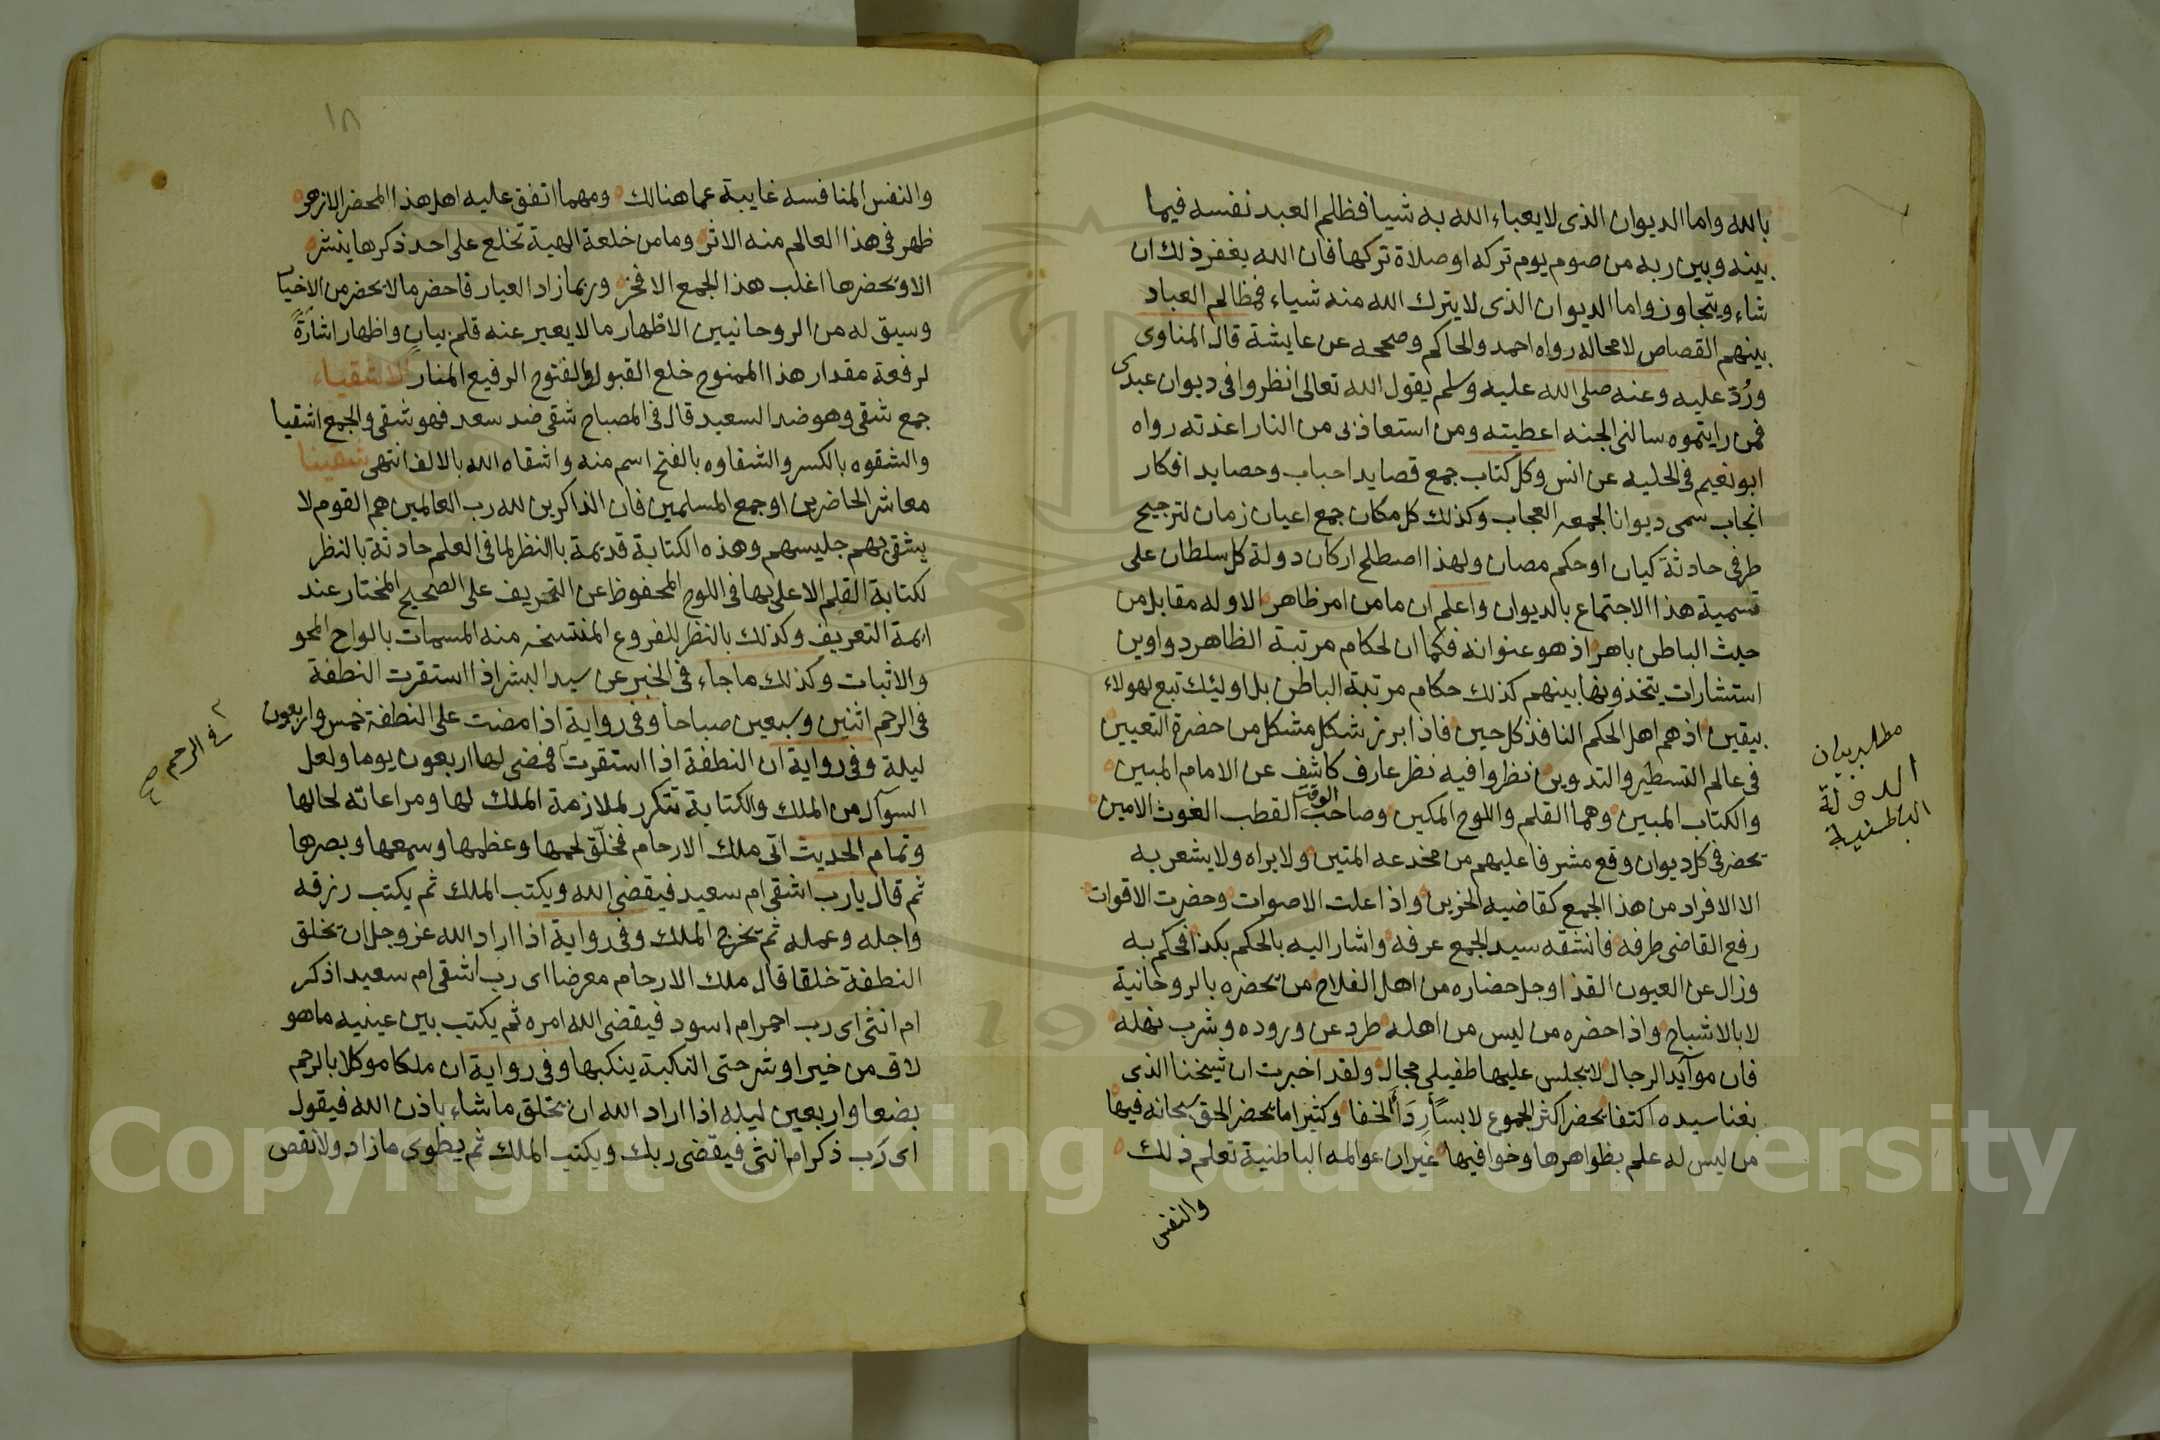 بالله واما الديوان الذى لا يعباء الله به شيا فظلم العبد نفسه فيما
بينه وبين ربه من صوم يوم تركه او صلاة تركها فان الله يغفر ذلك ان
شاء ويتجاوز واما الديوان الذى لا يترك الله منه شياء فمظالم العباد
بينهم القصاص لا محاله رواه احمد والحاكم وصححه عن عايشة قال المناوى
ورُدّ عليه وعنه صلى الله عليه وسلم يقول الله تعالى انظروا فى ديوان عبدى
فمن رايتموه سالنى الجنه اعطيته ومن استعاذ بى من النار اعذته رواه
ابو نعيم فى الحليه عن انس وكل كتاب جمع قصايد احباب وحصايد افكار
انجاب سمى ديوانا لجمعه العجاب وكذلك كل مكان جمع اعيان زمان لترجيح
طرفى حادثة كيان او حكم مصان ولهذا اصطلح اركان دولة كل سلطان على
تسمية هذا الاجتماع بالديوان واعلم ان ما من امر ظاهر الا وله مقابل من
حيث الباطن باهر اذ هو عنوانه فكما ان لحكام مرتبة الظاهر دواوين
استشارات يتخذونها بينهم كذلك حكام مرتبة الباطن بل اوليئك تبع لهولاء
بيقين اذ هم اهل الحكم النافذ كل حين فاذا برز شكل مشكل من حضرة التعيين
فى عالم التسطير والتدوين نظروا فيه نظر عارف كاشف عن الامام المبين
والكتاب المبين وهما القلم واللوح المكين وصاحب الوقت القطب الغوث الامين
تحضر فى كل ديوان وقع مشرفا عليهم من مخدعه المتين ولا يراه ولا يشعر به
الا الافراد من هذا الجمع كقاضيه الحزين واذا علت الاصوات وحضرت الاقوات
رفع القاضى طرفه فانشقه سيد الجمع عرفه واشار اليه بالحكم بكذا فحكم به
وزال عن العيون القذا وجل حضاره من اهل الفلاح من تحضره بالروحانية
لا بالاشباح واذا حضره من ليس من اهله طرد عن وروده وشرب نهله
فان موآيد الرجال لا يجلس عليها طفيلى مجال ولقد اخبرت ان شيخنا الذى
بغنا سيده اكتفا يحضر اكثر الجموع لابساً ردَاً الخفا وكثيرا ما يحضر الحق سبحانه فيها
من ليس له علم بظواهرها وخوافيها غير ان عوالمه الباطنية تعلم ذلك
والنفس
مطلب بيان
الدولة
الباطنية
١٨
والنفس المنافسه غايبة عما هنالك ومهما اتفق عليه اهل هذا المحضر الازهر
ظهر فى هذا العالم منه الاثر وما من خلعة الهية تخلع على احد ذكرها ينشر
الا ويحضرها اغلب هذا الجمع الافخر وربما زاد العيار فاحضر ما لا يحضر من الاخيار
وسيق له من الروحانيين الاظهار ما لا يعبر عنه قلم بيان واظهار اشارةً
لرفعة مقدار هذا الممنوح خلع القبول والفتوح الرفيع المنار الاشقياء
جمع شقى وهو ضد السعيد قال فى المصباح شقى ضد سعد فهو شقى والجمع اشقيا
والشقوه بالكسر والشقاوه بالفتح اسم منه واشقاه الله بالالف انتهى
معاشر الحاضرين او جمع المسلمين فان الذاكرين لله رب العالمين هم القوم لا
يشقى بهم جليسهم وهذه الكتابة قديمة بالنظر لما فى العلم حادثة بالنظر
لكتابة القلم الاعلى بها فى اللوح المحفوظ عن التحريف على الصحيح المختار عند
ايمة التعريف وكذلك بالنظر للفروع المنتسخه منه المسمات بالواح المحو
والاثبات وكذلك ما جاء فى الخبر عن سيد البشر اذا استقرت النطفة
فى الرحم اثنين وسبعين صباحا وفى رواية اذا مضت على النطفة خمس واربعون
ليلة وفى رواية ان النطفة اذا استقرت فمضى لها اربعون يوما ولعل
السوآل من الملك والكتابة تتكرر لملازمة الملك لها ومراعاته لحالها
وتمام الحديث اتى ملك الارحام فخلق لحمها وعظمها وسمعها وبصرها
ثم قال يا رب اشقى ام سعيد فيقضى الله ويكتب الملك ثم يكتب رزقه
واجله وعمله ثم يخرج الملك وفى رواية اذا اراد الله عز وجل ان يخلق
النطفة خلقا قال ملك الارحام معرضا اى رب اشقى ام سعيد اذكر
ام انثى اى رب احمر ام اسود فيقضى الله امره ثم يكتب بين عينيه ما هو
لاق من خير او شر حتى النكبة ينكبها وفى رواية ان ملكا موكلا بالرحم
بضعا واربعين ليله اذا اراد الله ان يخلق ما شاء باذن الله فيقول
اى رَب ذكر ام انثى فيقضى ربك ويكتب الملك ثم يطوى ما زاد ولا نقص
فى الرحم صح
Copyright © King Saud University